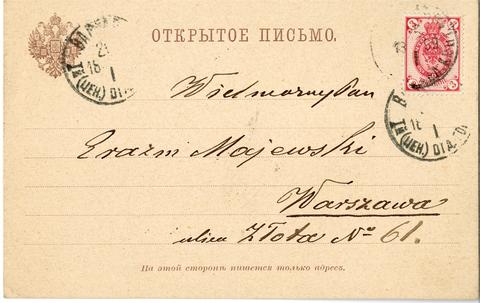 ОТКРЫТОЕ ПИСЬМО.
3 3
Wielmożny Pan
Erazm Majewski
Warszawa
ulica Złota № 61.
На этой сторонѣ пишется только адресъ.